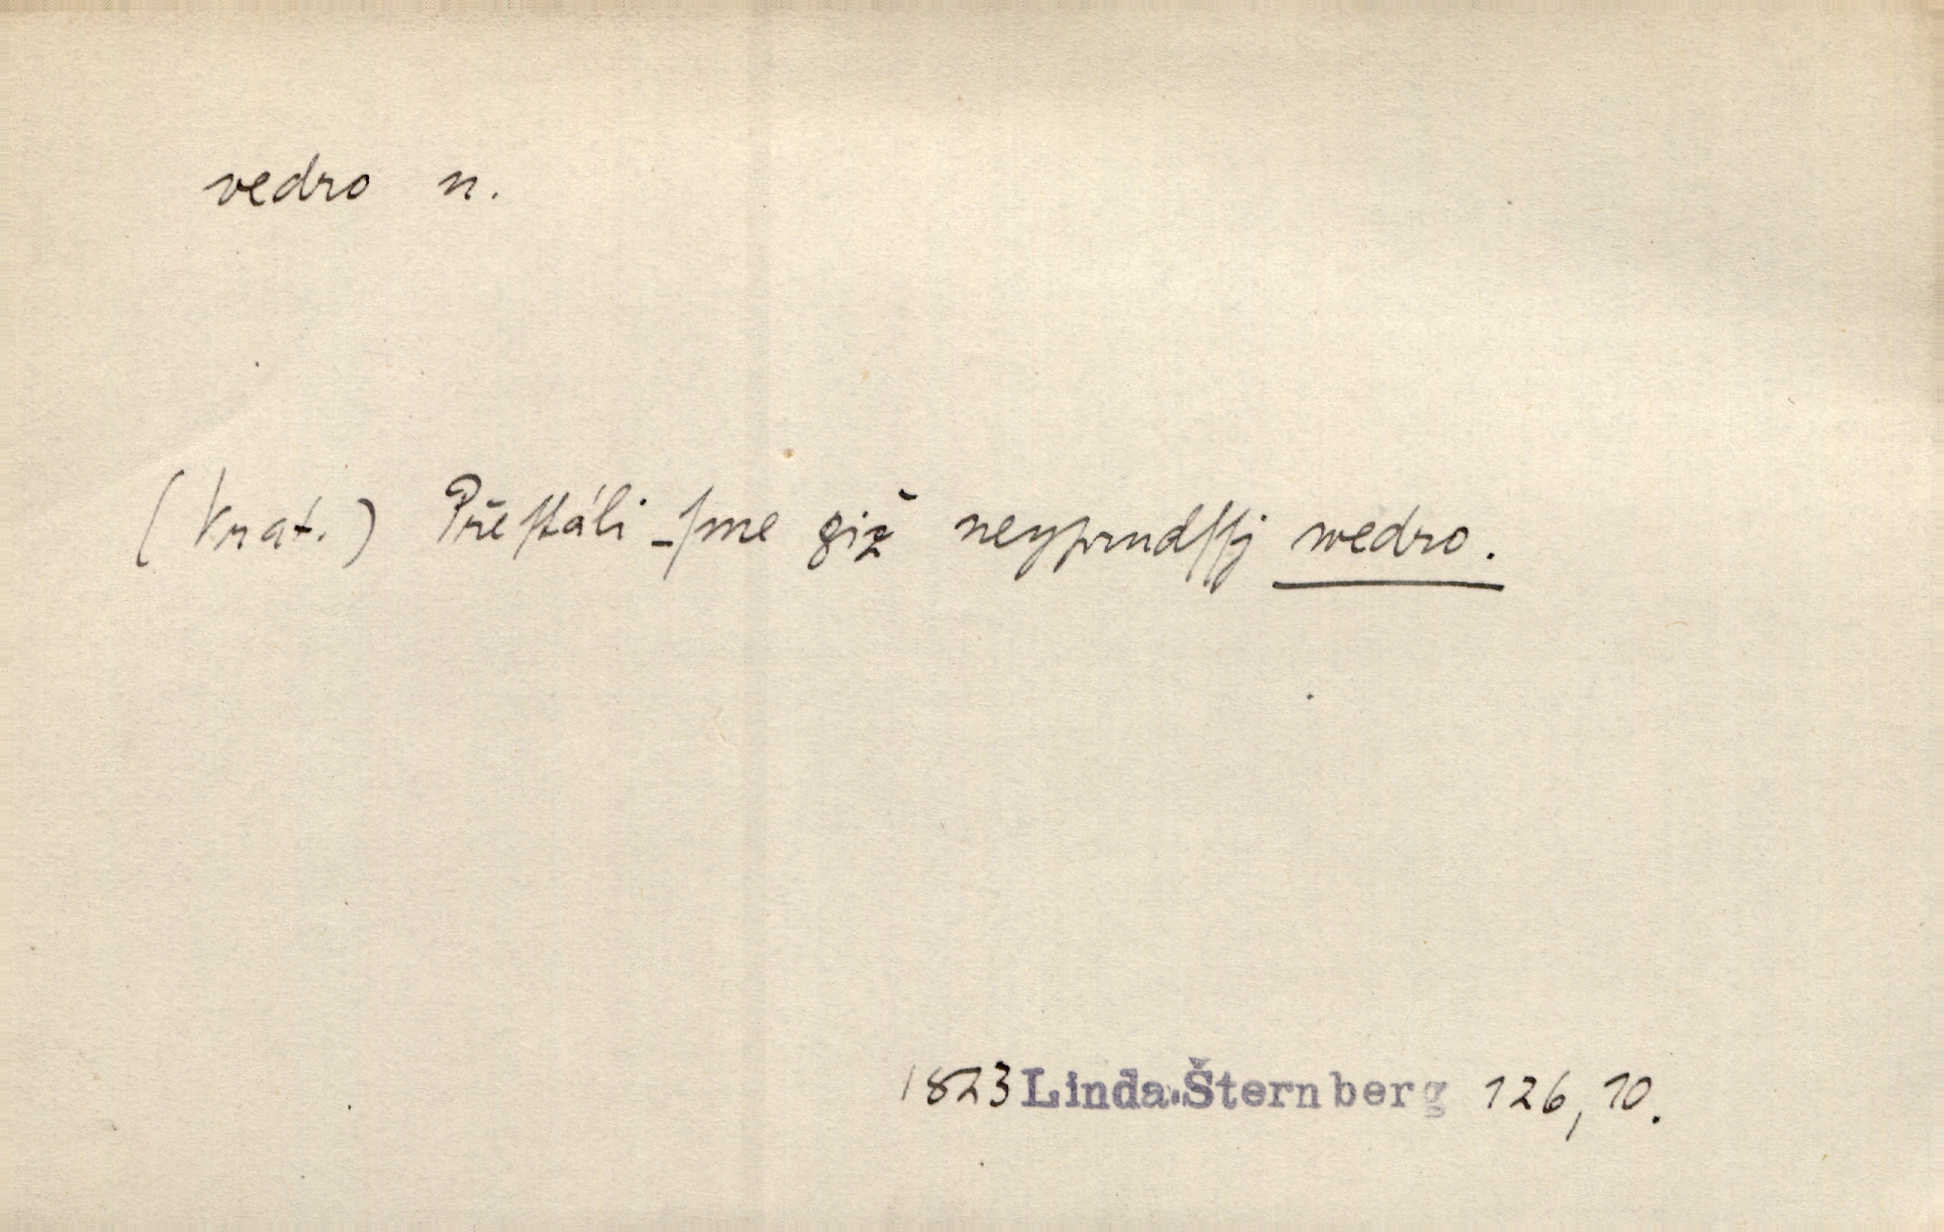 vedro n.
(Vrat.) Přeſtáli -ſme giž neyprudſſj wedro.
1823 Linda.Šternberg 126,10.